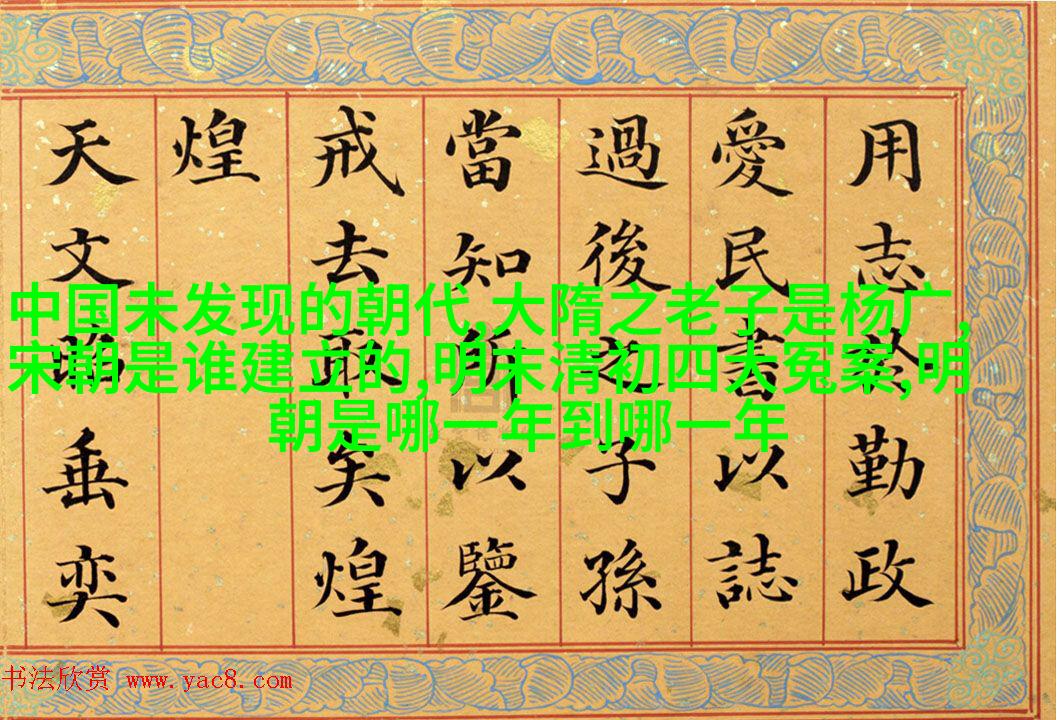 用志於勤政
愛民書以誌
過後之子孫
當知所以鑒
戒去取矣煌
煌
天文昭垂奕
中国未发现的朝代,大隋之老子是杨广,
宋朝是谁建立的,明末清初四大冤案,明
朝是哪一年到哪一年
书法欣赏 www.yac8.com